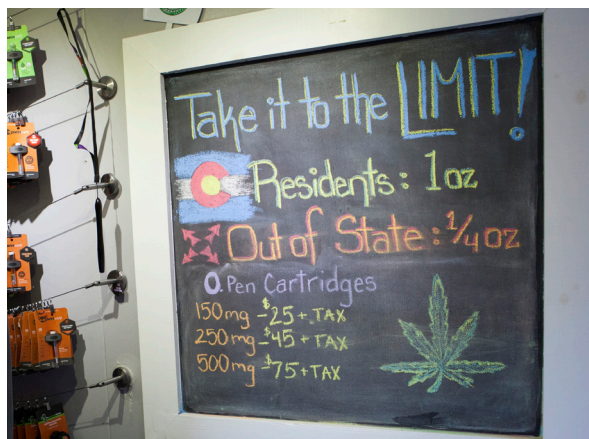 Take it to the LIMIT!
Residents: 1oz
Out of State: 1/4 oz
O.Pen Cartridges
150mg - $25 + TAX
250mg - $45 + TAX
500mg - $75 + TAX